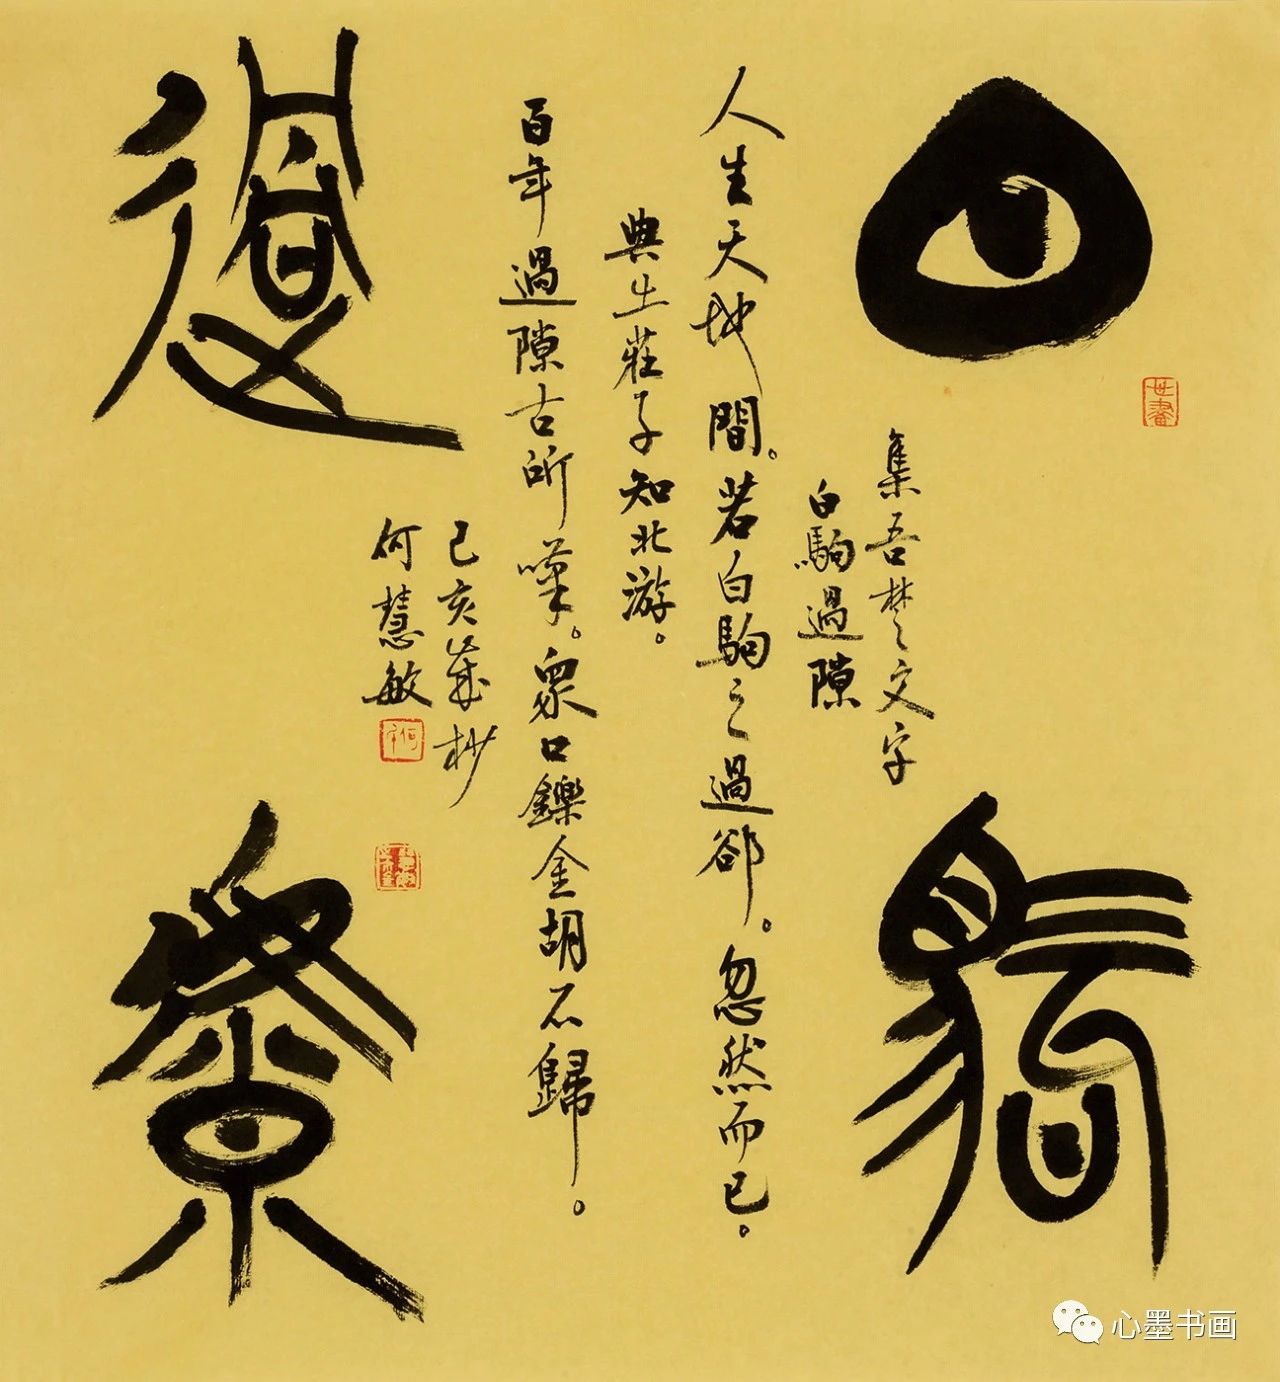 白駒
過隙
集吾楚文字
白駒過隙
人生天地間。若白駒之過郤。忽然而已。
典出莊子知北游。
百年過隙古所嘆。眾口鑠金胡不歸。
己亥歲杪
何慧敏
心墨书画